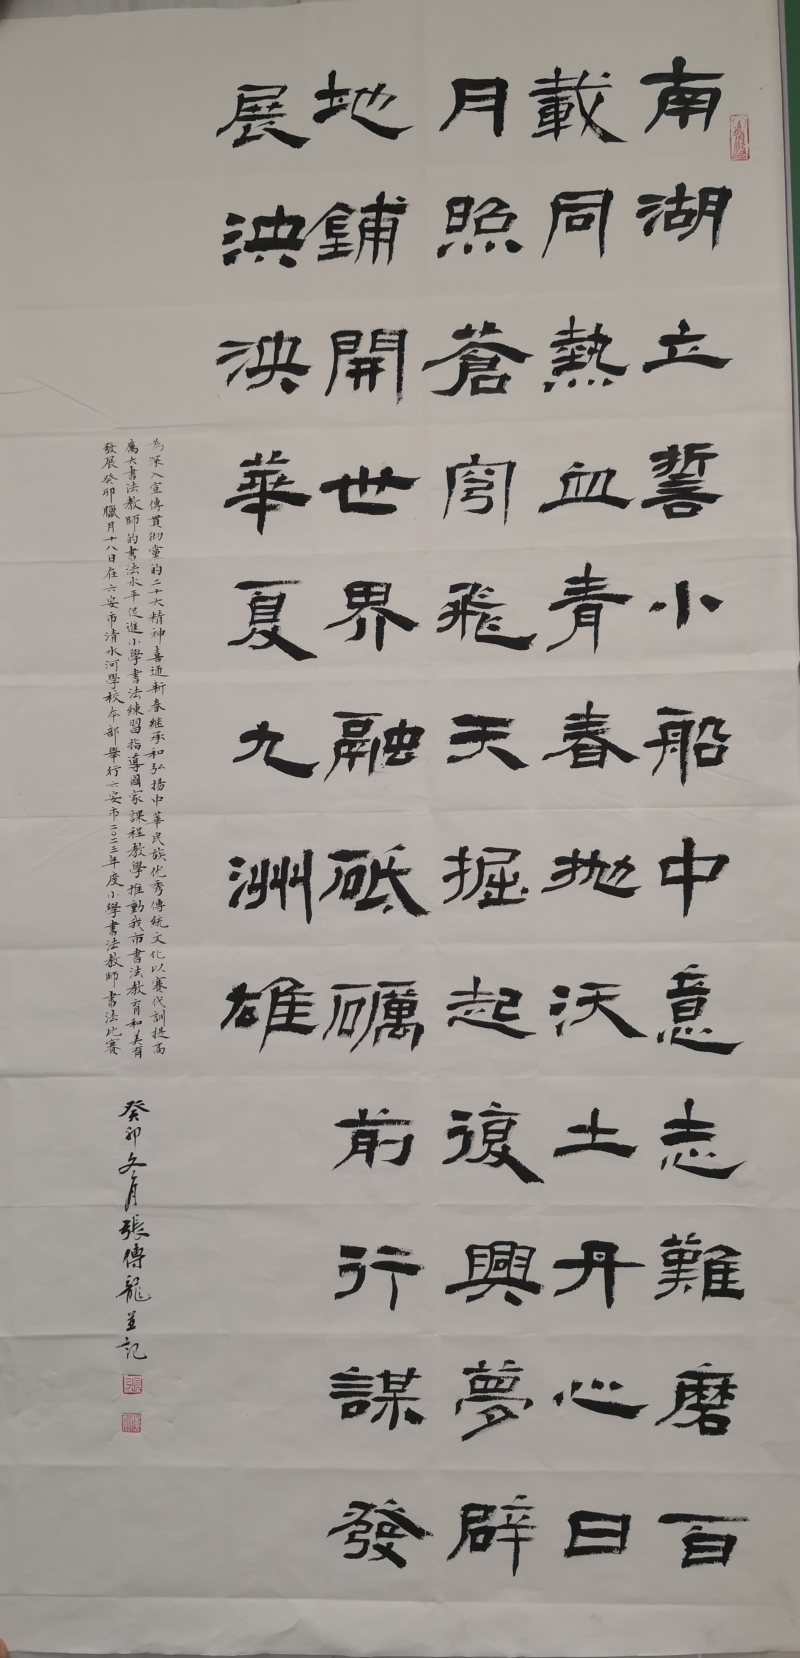 南湖立誓小船中意志難磨百
載同熱血青春抛沃土丹心日
月照蒼穹飛天掘起復興夢辟
地鋪開世界融砥礪前行謀發
展泱泱華夏九洲雄
為深入宣傳貫彻黨的二十大精神喜迎新春継承和弘揚中華民族优秀傳統文化以賽代訓提高
廣大書法教師的書法水平促進小學書法練習指導國家課程教學推動我市書法教育和美育
發展癸卯臘月十八日在六安市清水河學校本部舉行六安市二〇二三年度小學書法教師書法比賽
癸卯冬月張傳龍並記